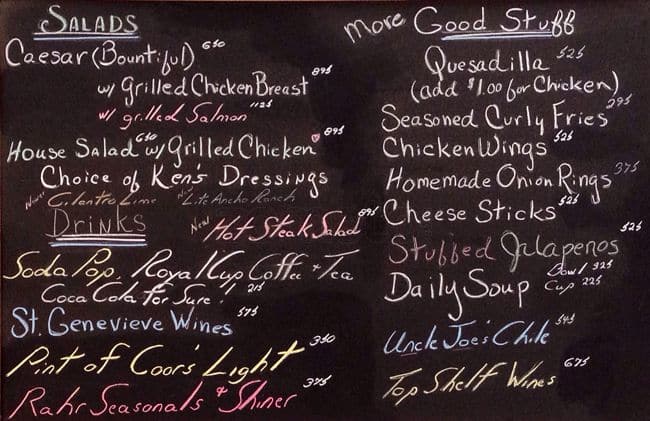 SALADS
Caesar (Bountiful) 650
w/ Grilled Chicken Breast 895
w/ grilled Salmon 1125
House Salad 650 w/ Grilled Chicken 895
Choice of Ken's Dressings
New Cilantro Lime New Lite Ancho Ranch
Drinks
New Hot Steak Salad 895
Soda Pop, Royal Kup Coffee + Tea
Coca Cola for Sure! 215
St. Genevieve Wines 575
Pint of Coors Light 350
Rahr Seasonals & Shiner 375
more Good Stuff
Quesadilla 525
(add $1.00 for Chicken)
Seasoned Curly Fries 295
Chicken Wings 525
Homemade Onion Rings 375
Cheese Sticks 525
Stuffed Jalapenos 525
Daily Soup Bowl 325
Cup 225
Uncle Joe's Chile 545
Top Shelf Wines 675